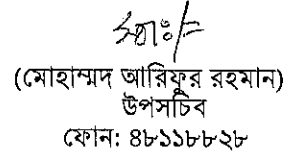 স্বাঃ/-
(মোহাম্মদ আরিফুর রহমান)
উপসচিব
ফোন: ৪৮১১৮৮২৮